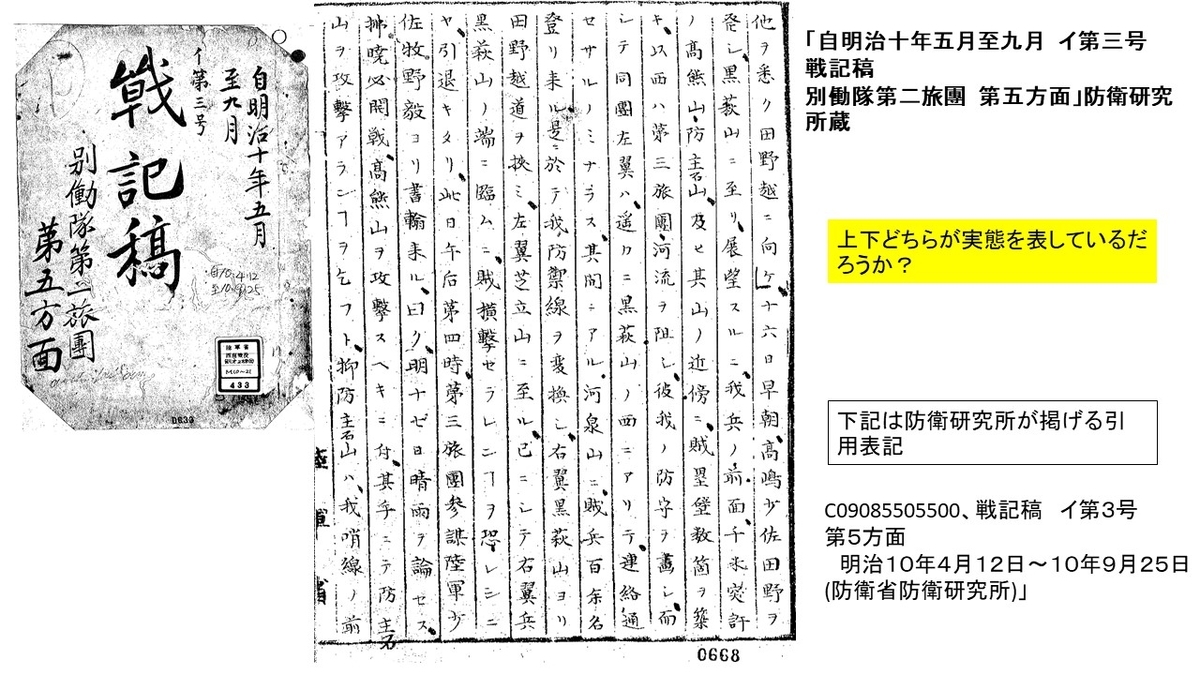 自明治十年五月
至九月
イ第三号
戦記稿
別働隊第二旅團
第五方面
自10.4.12
至10.9.25
陸軍省
M10~21
433
0639
他ヲ悉ク田野越ニ向ケ十六日早朝高嶋少佐田野ヲ
発シ黒萩山ニ至リ展望スルニ我兵ノ前面千米突許
ノ高熊山防主石山及ヒ其山ノ近傍ニ賊塁壁数箇ヲ築
キ以西ハ第三旅團河流ヲ阻シ彼我ノ防守ヲ畫シ而
シテ同團左翼ハ遥カニ黒萩山ノ西ニアリテ連絡通
セサルノミナラス其間ニアル河泉山ニ賊兵百余名
登リ来ル是ニ於テ我防禦線ヲ変換シ右翼黒萩山ヨリ
田野越道ヲ挾ミ左翼芝立山ニ至ル已ニシテ右翼兵
黒萩山ノ端ニ臨ムニ賊横撃セラレンヿヲ恐レシニ
ヤ引退キタリ此日午后第四時第三旅團参謀陸軍少
佐牧野毅ヨリ書翰来ル曰ク明十七日晴雨ヲ論セス
拂暁必開戦高熊山ヲ攻撃スヘキニ付其手ニテ防主石
山ヲ攻撃アランヿヲ乞フト抑防主石山ハ我哨線ノ前
陸軍省
0668
「自明治十年五月至九月 イ第三号
戦記稿
別働隊第二旅團 第五方面」防衛研究
所蔵
上下どちらが実態を表しているだ
ろうか？
下記は防衛研究所が掲げる引
用表記
C09085505500、戦記稿 イ第３号
第５方面
明治１０年４月１２日～１０年９月２５日
(防衛省防衛研究所)」